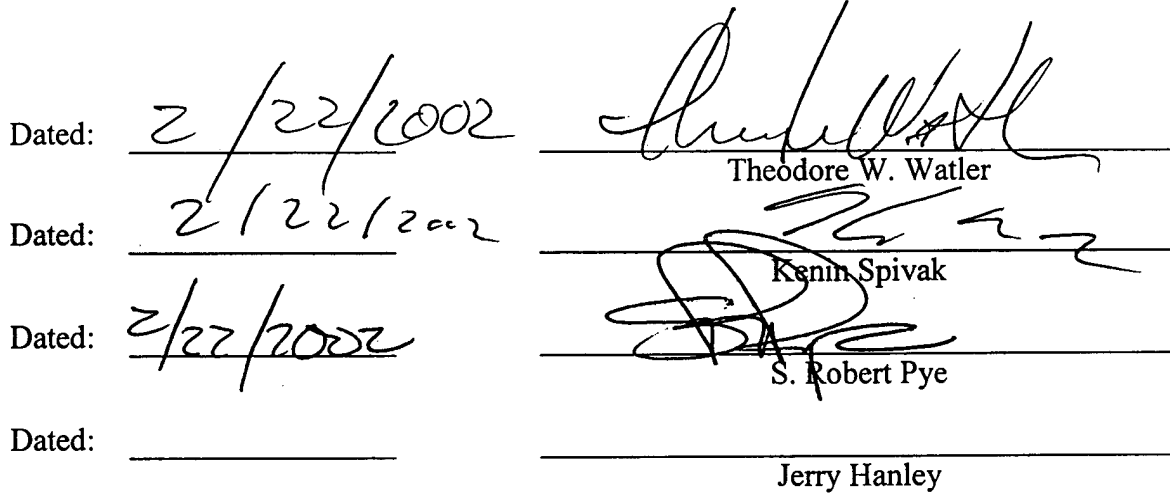 Dated: 2/22/2002
Theodore W. Watler
Dated: 2/22/2002
Kenin Spivak
Dated: 2/22/2002
S. Robert Pye
Dated:
Jerry Hanley